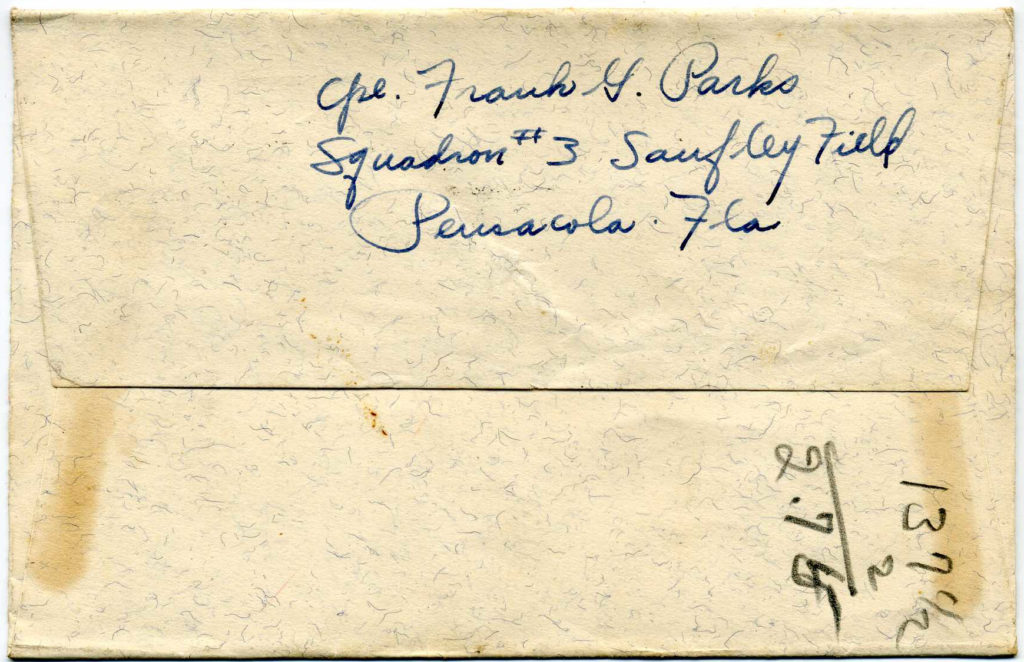 Cpl. Frank G. Parks
Squadron #3 Saufley Field
Pensacola Fla
137 1/2
2